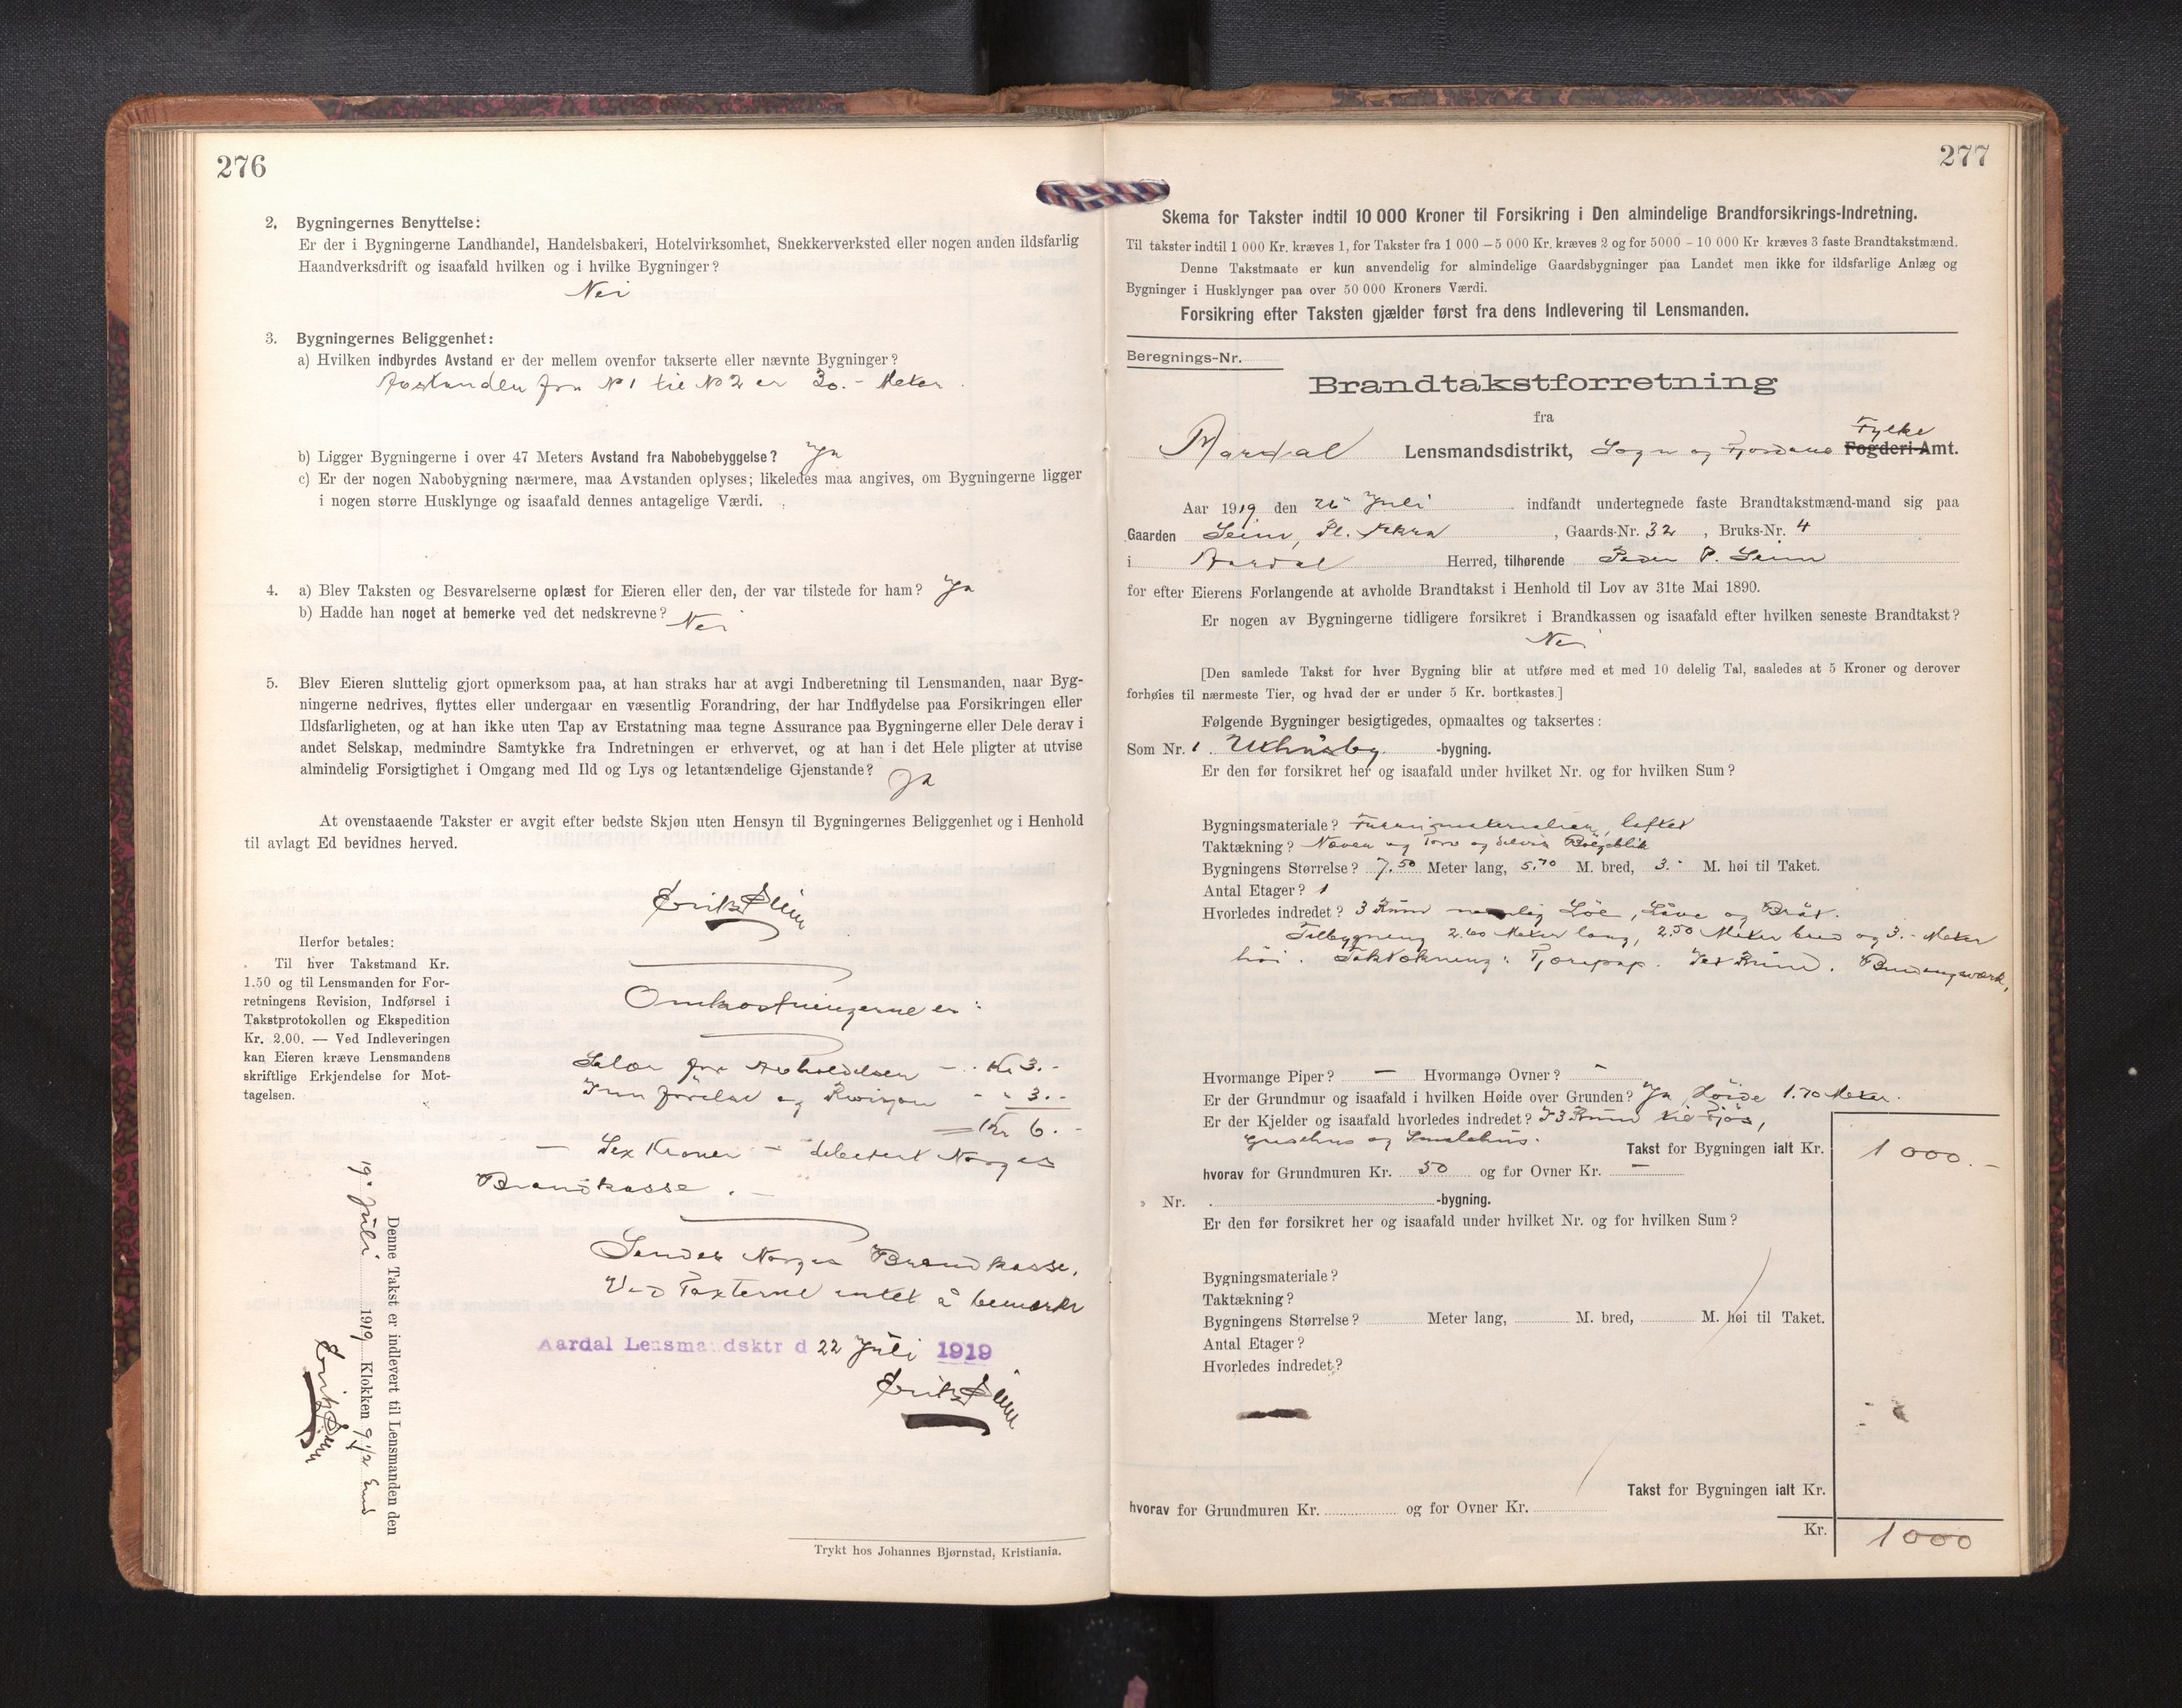 276
2. Bygningernes Benyttelse:
Er der i Bygningerne Landhandel, Handelsbakeri, Hotelvirksomhet, Snekkerverksted eller nogen anden ildsfarlig
Haandverksdrift og isaafald hvilken og i hvilke Bygninger?
Nei
3. Bygningernes Beliggenhet:
a) Hvilken indbyrdes Avstand er der mellem ovenfor takserte eller nævnte Bygninger?
Avstanden fra No 1 til No 2 er 30.- Meter.
b) Ligger Bygningerne i over 47 Meters Avstand fra Nabobebyggelse? Ja
c) Er der nogen Nabobygning nærmere, maa Avstanden oplyses; likeledes maa angives, om Bygningerne ligger
i nogen større Husklynge og isaafald dennes antagelige Værdi.
4. a) Blev Taksten og Besvarelserne oplæst for Eieren eller den, der var tilstede for ham? Ja
b) Hadde han noget at bemerke ved det nedskrevne? Nei
5. Blev Eieren sluttelig gjort opmerksom paa, at han straks har at avgi Indberetning til Lensmanden, naar Byg-
ningerne nedrives, flyttes eller undergaar en væsentlig Forandring, der har Indflydelse paa Forsikringen eller
Ildsfarligheten, og at han ikke uten Tap av Erstatning maa tegne Assurance paa Bygningerne eller Dele derav i
andet Selskap, medmindre Samtykke fra Indretningen er erhvervet, og at han i det Hele pligter at utvise
almindelig Forsigtighet i Omgang med Ild og Lys og letantændelige Gjenstande? Ja
At ovenstaaende Takster er avgit efter bedste Skjøn uten Hensyn til Bygningernes Beliggenhet og i Henhold
til avlagt Ed bevidnes herved.
Erik Seim
Herfor betales:
Til hver Takstmand Kr.
1.50 og til Lensmanden for For-
retningens Revision, Indførsel i
Takstprotokollen og Ekspedition
Kr. 2.00. — Ved Indleveringen
kan Eieren kræve Lensmandens
skriftlige Erkjendelse for Mot-
tagelsen.
Omkostningerne er:
Salær for Avholdelsen - Kr 3.-
Innførelse og Revisjon - - 3.-
= Kr 6.-
- Sex Kroner - debetert Norges
Brandkasse.-
Sendes Norges Brandkasse.
Ved Taxterne intet å bemerke
Aardal Lensmandsktr d 22 Juli 1919
Erik Seim
Denne Takst er indlevert til Lensmanden den
19' Juli 1919 Klokken 9 1/2 Emd
Erik Seim
Trykt hos Johannes Bjørnstad, Kristiania.
277
Skema for Takster indtil 10 000 Kroner til Forsikring i Den almindelige Brandforsikrings-Indretning.
Til takster indtil 1 000 Kr. kræves 1, for Takster fra 1 000 – 5 000 Kr. kræves 2 og for 5000 – 10 000 Kr kræves 3 faste Brandtakstmænd.
Denne Takstmaate er kun anvendelig for almindelige Gaardsbygninger paa Landet men ikke for ildsfarlige Anlæg og
Bygninger i Husklynger paa over 50 000 Kroners Værdi.
Forsikring efter Taksten gjælder først fra dens Indlevering til Lensmanden.
Beregnings-Nr.
Brandtakstforretning
fra
Aardal Lensmandsdistrikt, Sogn og Fjordane Fylke Fogderi-Amt.
Aar 1919 den Juli indfandt undertegnede faste Brandtakstmænd-mand sig paa
Gaarden Seim, Pl. , Gaards-Nr. 32, Bruks-Nr. 4
i Aardal Herred, tilhørende Peder P. Seim
for efter Eierens Forlangende at avholde Brandtakst i Henhold til Lov av 31te Mai 1890.
Er nogen av Bygningerne tidligere forsikret i Brandkassen og isaafald efter hvilken seneste Brandtakst?
Nei
[Den samlede Takst for hver Bygning blir at utføre med et med 10 delelig Tal, saaledes at 5 Kroner og derover
forhøies til nærmeste Tier, og hvad der er under 5 Kr. bortkastes.]
Følgende Bygninger besigtigedes, opmaaltes og taksertes:
Som Nr. 1. Uthusby -bygning.
Er den før forsikret her og isaafald under hvilket Nr. og for hvilken Sum?
Bygningsmateriale? Furumaterialier, laftet
Taktækning? Næver og Torv og delvis Bølgeblik
Bygningens Størrelse? 7.50 Meter lang, 5.70 M. bred, 3.- M. høi til Taket.
Antal Etager? 1
Hvorledes indredet? 3 Rum nemlig Löe, Låve og Bräs.
Tilbygning 2.60 Meter lang, 2.50 Meter bred og 3.- Meter
höi. Taktækning: Tjærepap. Bindingsværk,
Hvormange Piper? — Hvormange Ovner? -
Er der Grundmur og isaafald i hvilken Høide over Grunden? Ja Höide 1.70 Meter.
Er der Kjelder og isaafald hvorledes indredet? I 3 Rum til Fjös,
Grisehus og Smalehus.
Takst for Bygningen ialt Kr. 1000.-
hvorav for Grundmuren Kr. 50 og for Ovner Kr. —
Nr. -bygning.
Er den før forsikret her og isaafald under hvilket Nr. og for hvilken Sum?
Bygningsmateriale?
Taktækning?
Bygningens Størrelse? Meter lang, M. bred, M. høi til Taket.
Antal Etager?
Hvorledes indredet?
Takst for Bygningen ialt Kr.
hvorav for Grundmuren Kr. og for Ovner Kr.
Kr. 1000